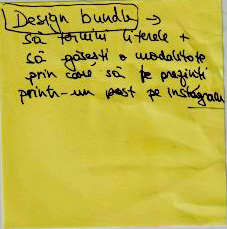 Design bundle →
să termini literele +
să găsești o modalitate
prin care să te prezinți
printr-un post pe instagram